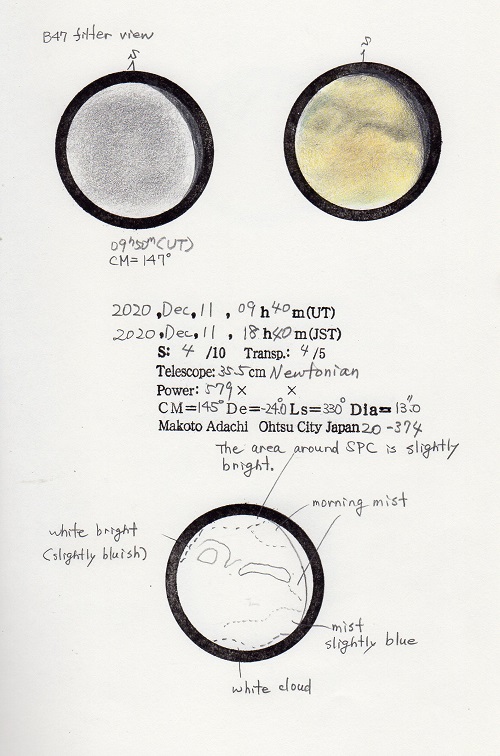 B47 filter view
S
S
09h50m(UT)
CM=147°
2020,Dec,11, 09h40m(UT)
2020,Dec,11, 18h40m(JST)
S: 4 /10 Transp.: 4 /5
Telescope: 35.5cm Newtonian
Power: 579× ×
CM=145° De=-24.0° Ls=330° Dia=13".0
Makoto Adachi Ohtsu City Japan 20-374
The area around SPC is slightly
bright.
morning mist
white bright
(slightly bluish)
mist
slightly blue
white cloud